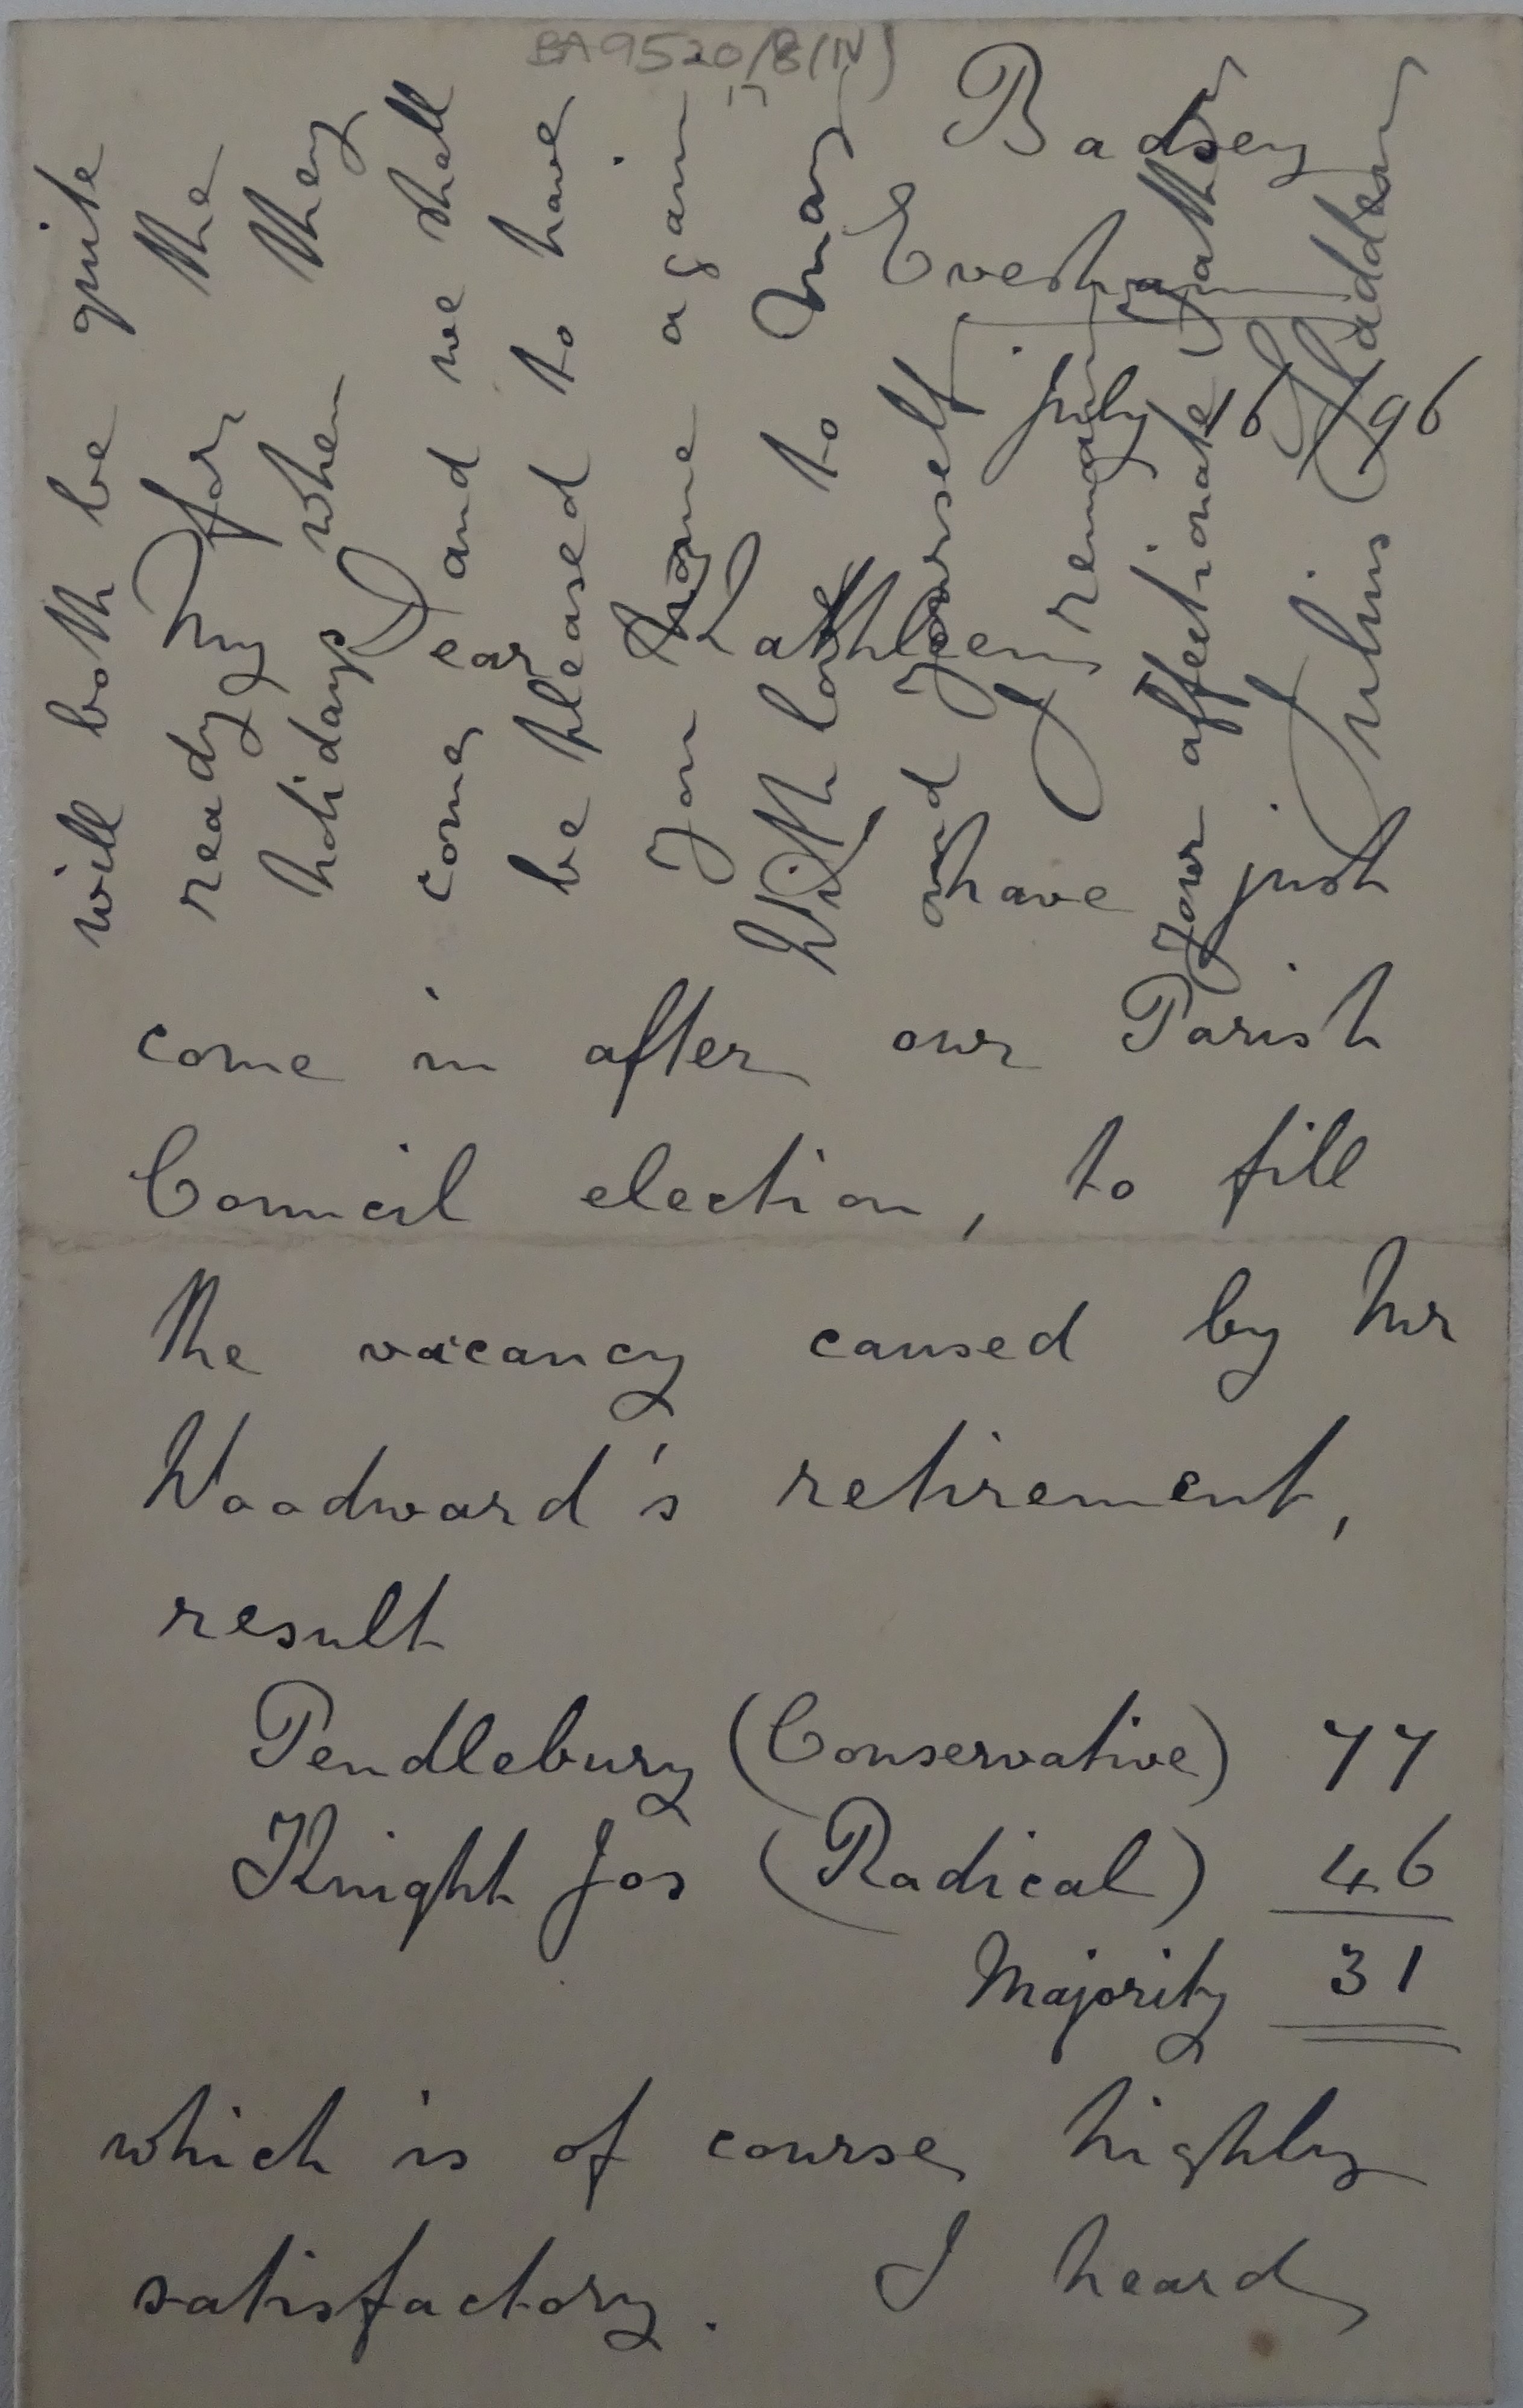 BA9520/8(IV)
17
Badsey
Evesham
July 16/96
My Dear Kathleen
I have just
come in after our Parish
Council election, to fill
the vacancy caused by Mr
Woodward's retirement,
result
Pendlebury (Conservative) 77
Knight Jos (Radical) 46
Majority 31
which is of course highly
satisfactory. I heard
will both be quite
ready for the
holidays when they
come, and we shall
be pleased to have
you home again.
With love to May
and yourself
I remain
Your affectionate Father
Julius Sladden